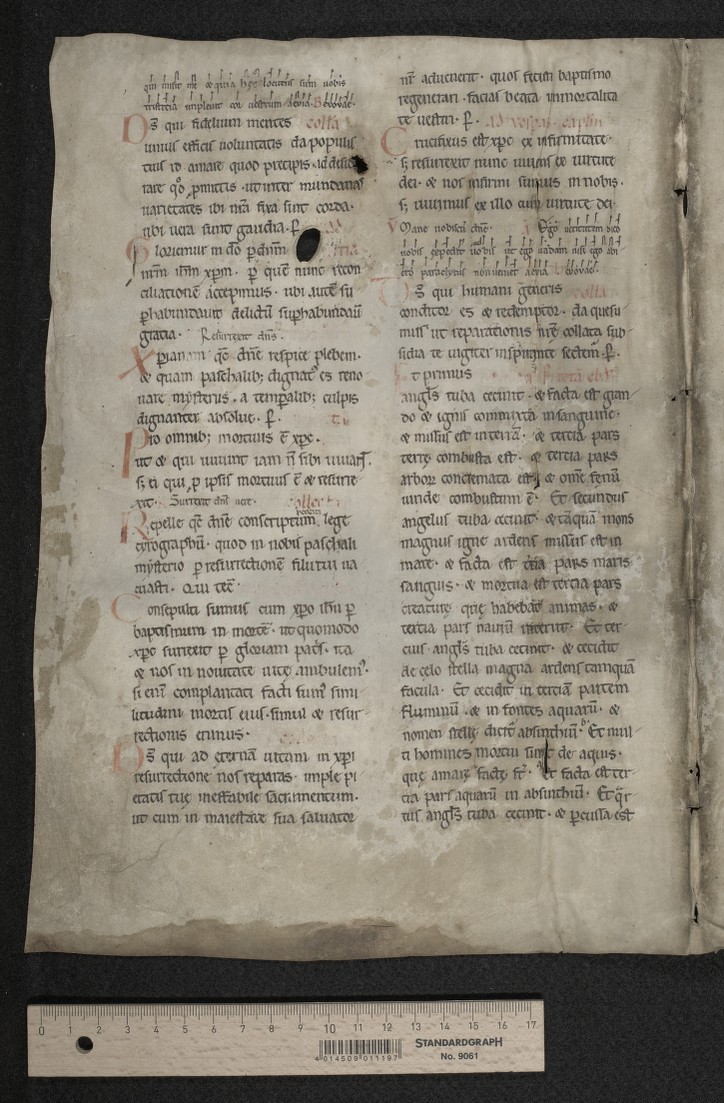 qui misit me & quia hęc locutus sum uobis
tristitia impleuit cor uestrum aeuia. Euouae.
Ds qui fidelium mentes colla
unius efficis uoluntatis da populis
tuis id amare quod precipis. id deside
rare qđ ꝓmittis. ut inter mundanas
uarietates ibi nrā fixa sint corda.
ubi uera sunt gaudia. P.
Gloriemur in dō p dn̄m
nrm ihm xpm. p quē nunc recon
ciliationē accepimus. ubi autē su
phabundauit delictū suphabundauit
gratia. Resurrexit dn̄s.
Xpianam qs dn̄e respice plebem.
& quam paschalib; dignat' es reno
uare mysteriis. a temporalib; culpis
dignanter absolue. P.
Pro omnib; mortuus ē xpc.
ut & qui uiuunt iam n̄ sibi uiuant.
s; ei qui p ipsis mortuus ē & resurre
xit. Surrexit dn̄s uere. collect
Repelle qs dn̄e conscriptum lege
cyrographū. quod in nobis paschali
mysterio p resurrectionē filii tui ua
cuasti. Qui tec̄
Consepulti sumus cum xpo ihu p
baptismum in mortē. ut quomodo
xpc surrexit p gloriam patris. ita
& nos in nouitate uitę ambulem'.
si enī complantati facti sum' simi
litudini mortis eius. simul & resur
rectionis erimus.
Ds qui ad eternā uitam in xpi
resurrectione nos reparas. imple pi
etatis tuę ineffabile sacramentum.
ut cum in maiestate sua saluator
nr̄ aduenerit. quos fecisti baptismo
regenerari. facias beata inmortalita
te uestiri. P. ad uesperas. caplm
Crucifixus est xpc ex infirmitate.
s; resurrexit nunc uiuens ex uirtute
dei. & nos infirmi sumus in nobis.
s; uiuimus ex illo cum uirtute dei.
Mane nobiscū dn̄e. Ego ueritatem dico
uobis expedit uobis ut ego uadam nisi ego abi
ero paraclytus non ueniet aeuia Euouae.
Ds qui humani generis colla
conditor es & redemptor. da quesu
mus ut reparationis nrē collata sub
sidia te iugiter inspirante sectem̄. P.
Et primus
angls tuba cecinit. & facta est gran
do & ignis commixta in sanguine.
& missus est in terrā. & tercia pars
terrę combusta est. & tercia pars
arborū concremata est & omē fenū
uiride combustum ē. Et secundus
angelus tuba cecinit. & tāquā mons
magnus igne ardens missus est in
mare. & facta est tcīa pars maris
sanguis. & mortua est tercia pars
creaturę quę habebat animas. &
tercia pars nauiū interiit. Et ter
cius angls tuba cecinit. & cecidit
de celo stella magna ardens tamquā
facula. Et cecidit in terciā partem
fluminū. & in fontes aquarū. &
nomen stellę dicit' absinthiū. Et mul
ti homines mortui sunt de aquis.
quę amarę factę st̄. Et facta est ter
cia pars aquarū in absinthiū. Et q̄r
tus angls tuba cecinit. & pcussa est
0 1 2 3 4 5 6 7 8 9 10 11 12 13 14 15 16 17
4 014509 011197
STANDARDGRAPH
No. 9061